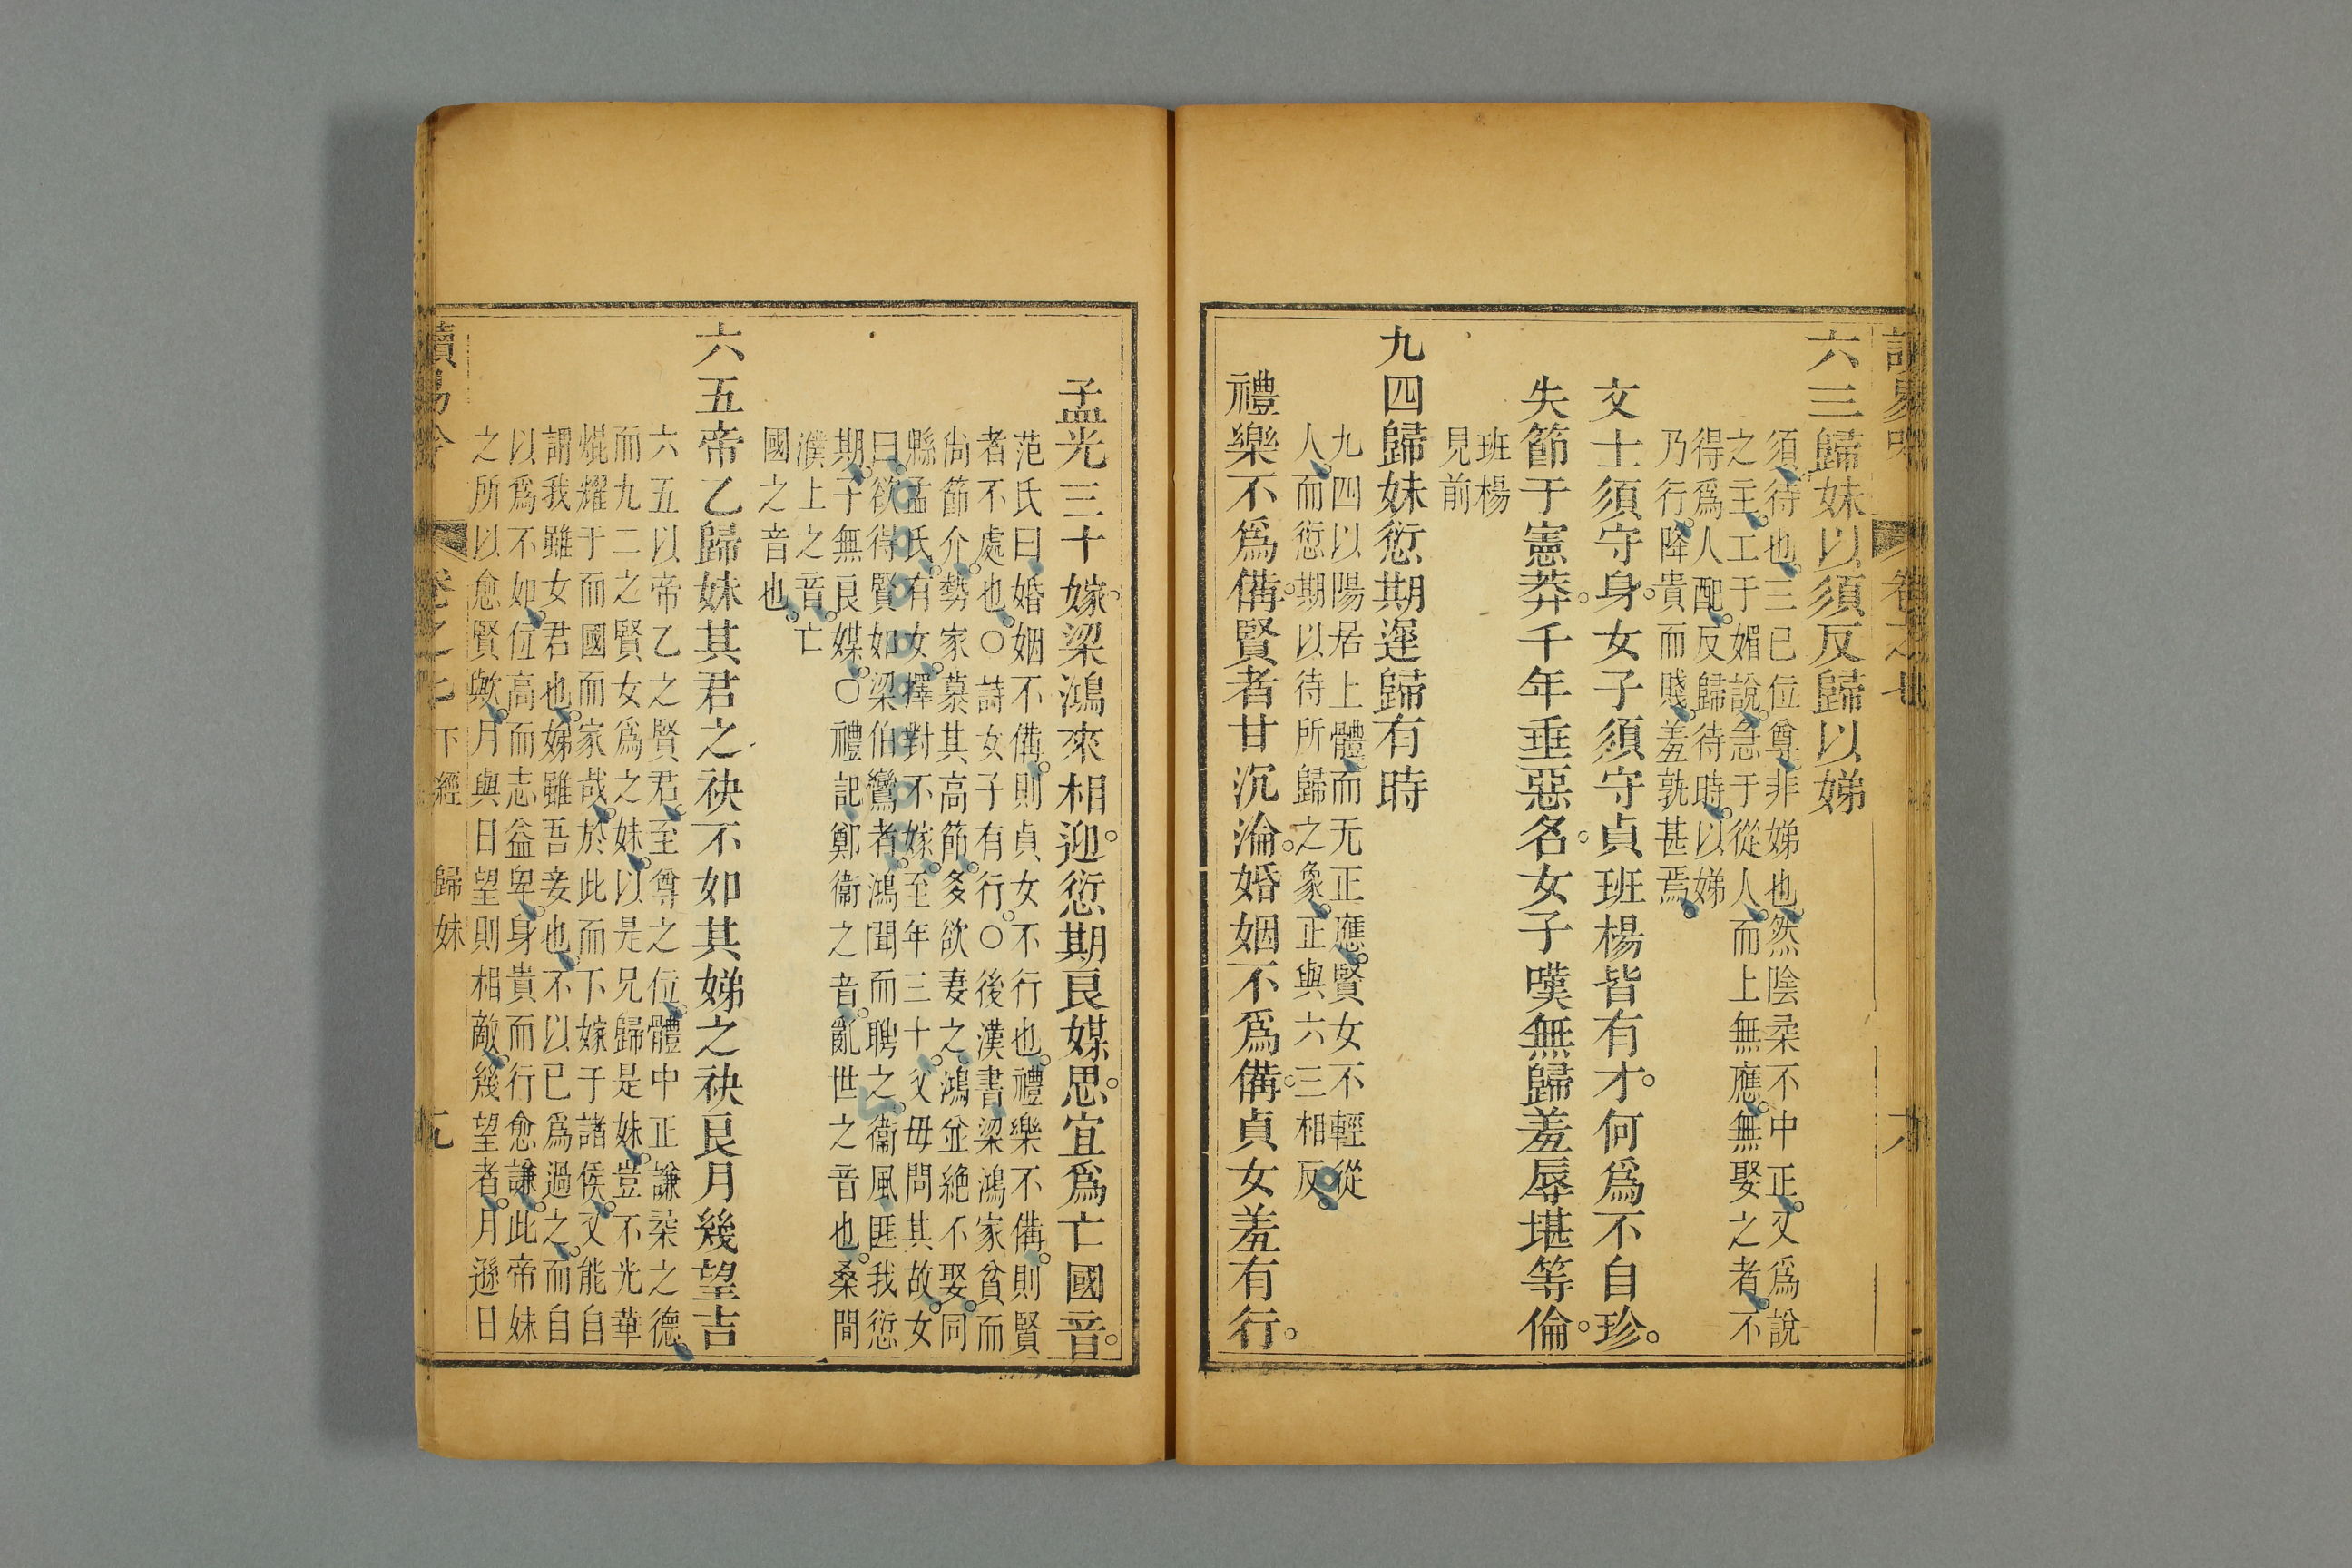 卷之七
六三歸妹以須反歸以娣
須待也三已位尊非娣也然陰柔不中正又爲說
之主工于媚說急于從人而上無應無娶之者不
得爲人配反歸待時以娣
乃行降貴而賤羞孰甚焉
文士須守身女子須守貞班楊皆有才何爲不自珍
失節于憲莽千年垂惡名女子嘆無歸羞辱堪等倫
班楊
見前
九四歸妹愆期遲歸有時
九四以陽居上體而无正應賢女不輕從
人而愆期以待所歸之象正與六三相反
禮樂不爲備賢者甘沉淪婚姻不爲備貞女羞有行
孟光三十嫁梁鴻來相迎愆期良媒思宜爲亡國音
范氏曰婚姻不備則貞女不行也禮樂不備則賢
者不處也○詩女子有行○後漢書梁鴻家貧而
尙節介勢家慕其高節多欲妻之鴻並絕不娶同
縣孟氏有女擇對不嫁至年三十父母問其故女
曰欲待賢如梁伯鸞者鴻聞而聘之衞風匪我愆
期子無良媒○禮記鄭衞之音亂世之音也桑間
濮上之音亡
國之音也
六五帝乙歸妹其君之袂不如其娣之袂良月幾望吉
六五以帝乙之賢君至尊之位體中正謙柔之德
而九二之賢女爲之妹以是兄歸是妹豈不光華
焜耀于而國而家哉於此而下嫁于諸侯又能自
謂我雖女君也娣雖吾妾也不以已爲過之而自
以爲不如位高而志益卑身貴而行愈謙此帝妹
之所以愈賢歟月與日望則相敵幾望者月遜日
讀易 卷之七 下經 歸妹